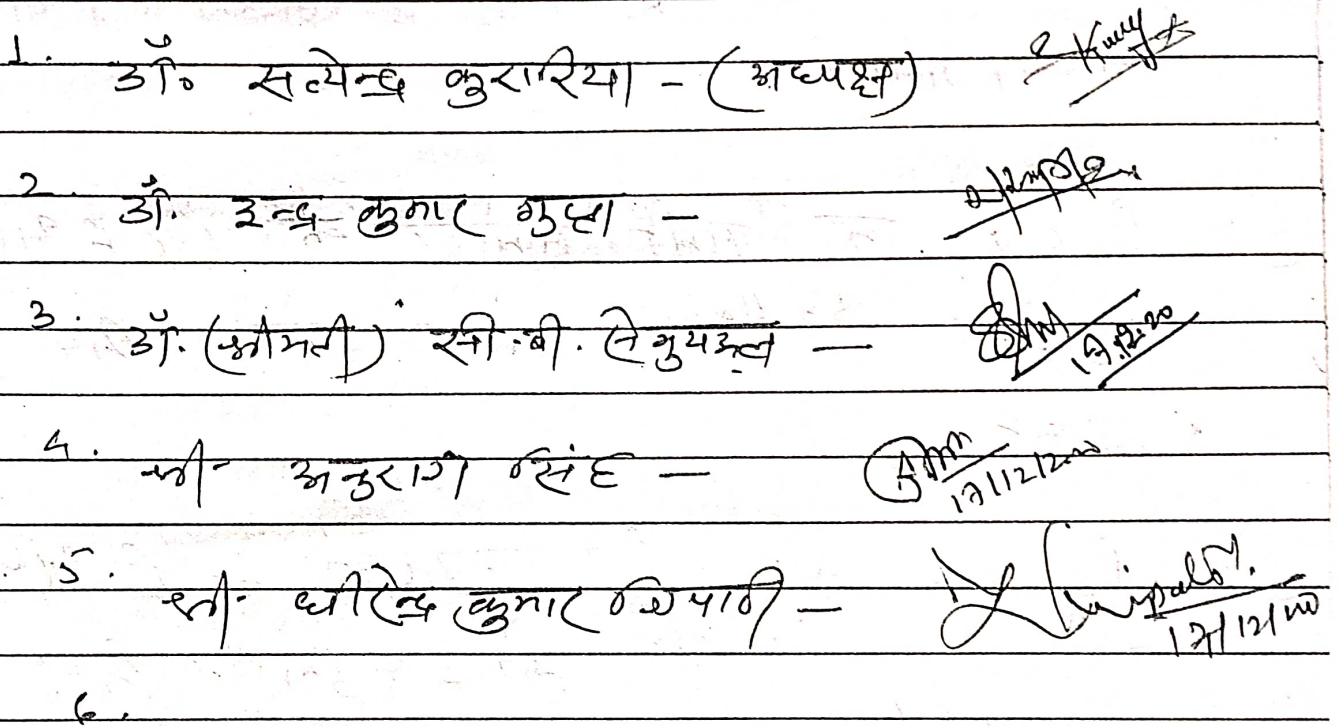 1. डॉ० सत्येन्द्र कुरारिया - (अध्यक्ष)
2. डॉ. इन्द्र कुमार गुप्ता -
3. डॉ. (श्रीमती) सी.बी. — 17.12.20
4. श्री अनुराग सिंह — 17/12/2020
5. श्री धीरेन्द्र कुमार त्रिपाठी — 17/12/20
6.